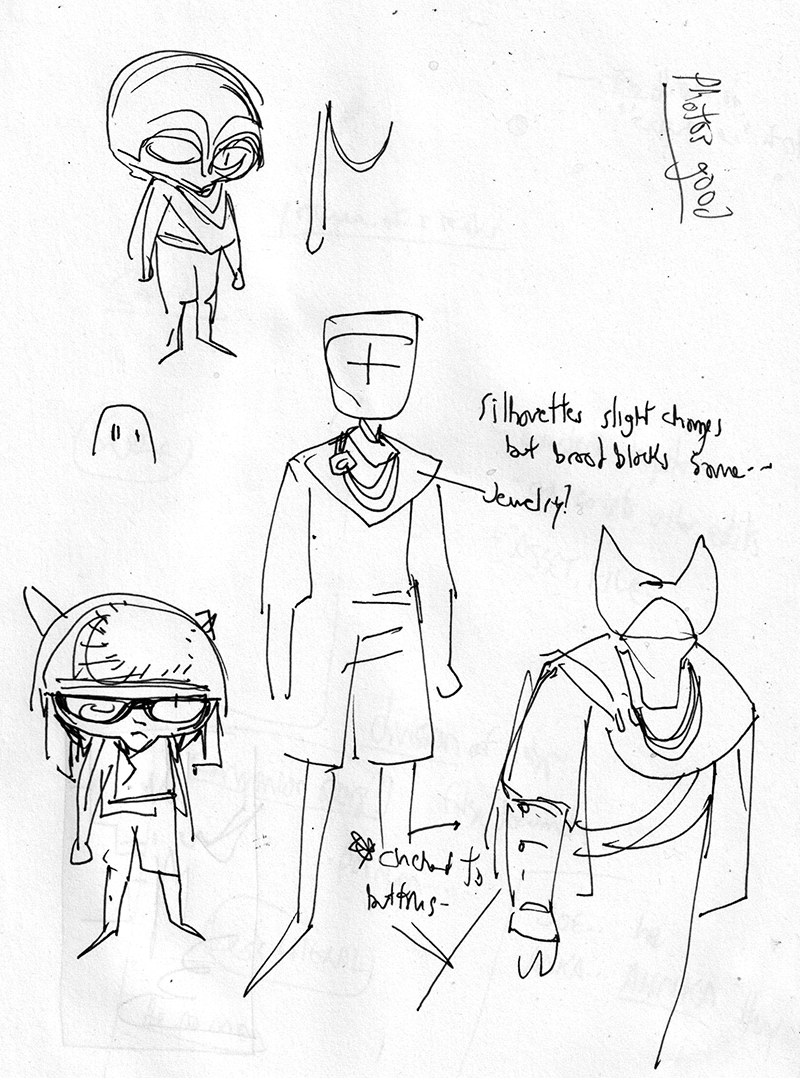 photos good
Silhouettes slight changes
but broad blocks same--
Jewelry?
to
buttons-